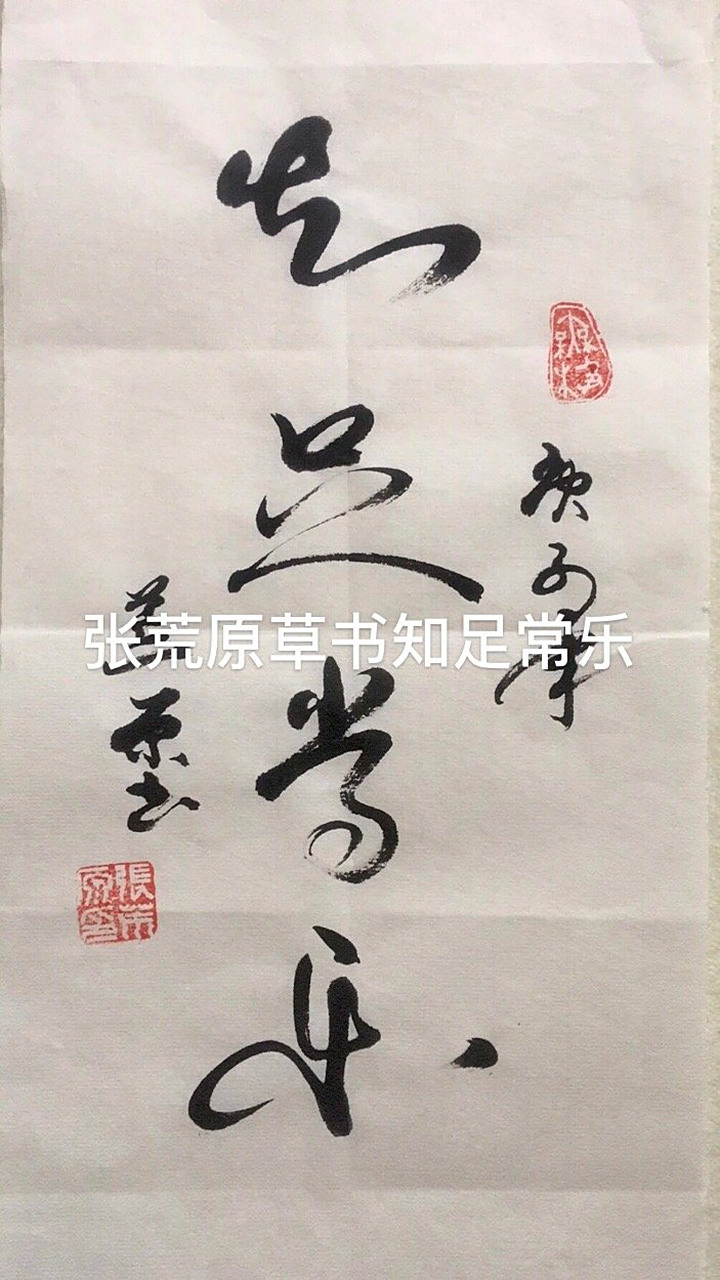 知足常乐
庚子年
荒原书
张荒原草书知足常乐
張荒
原印